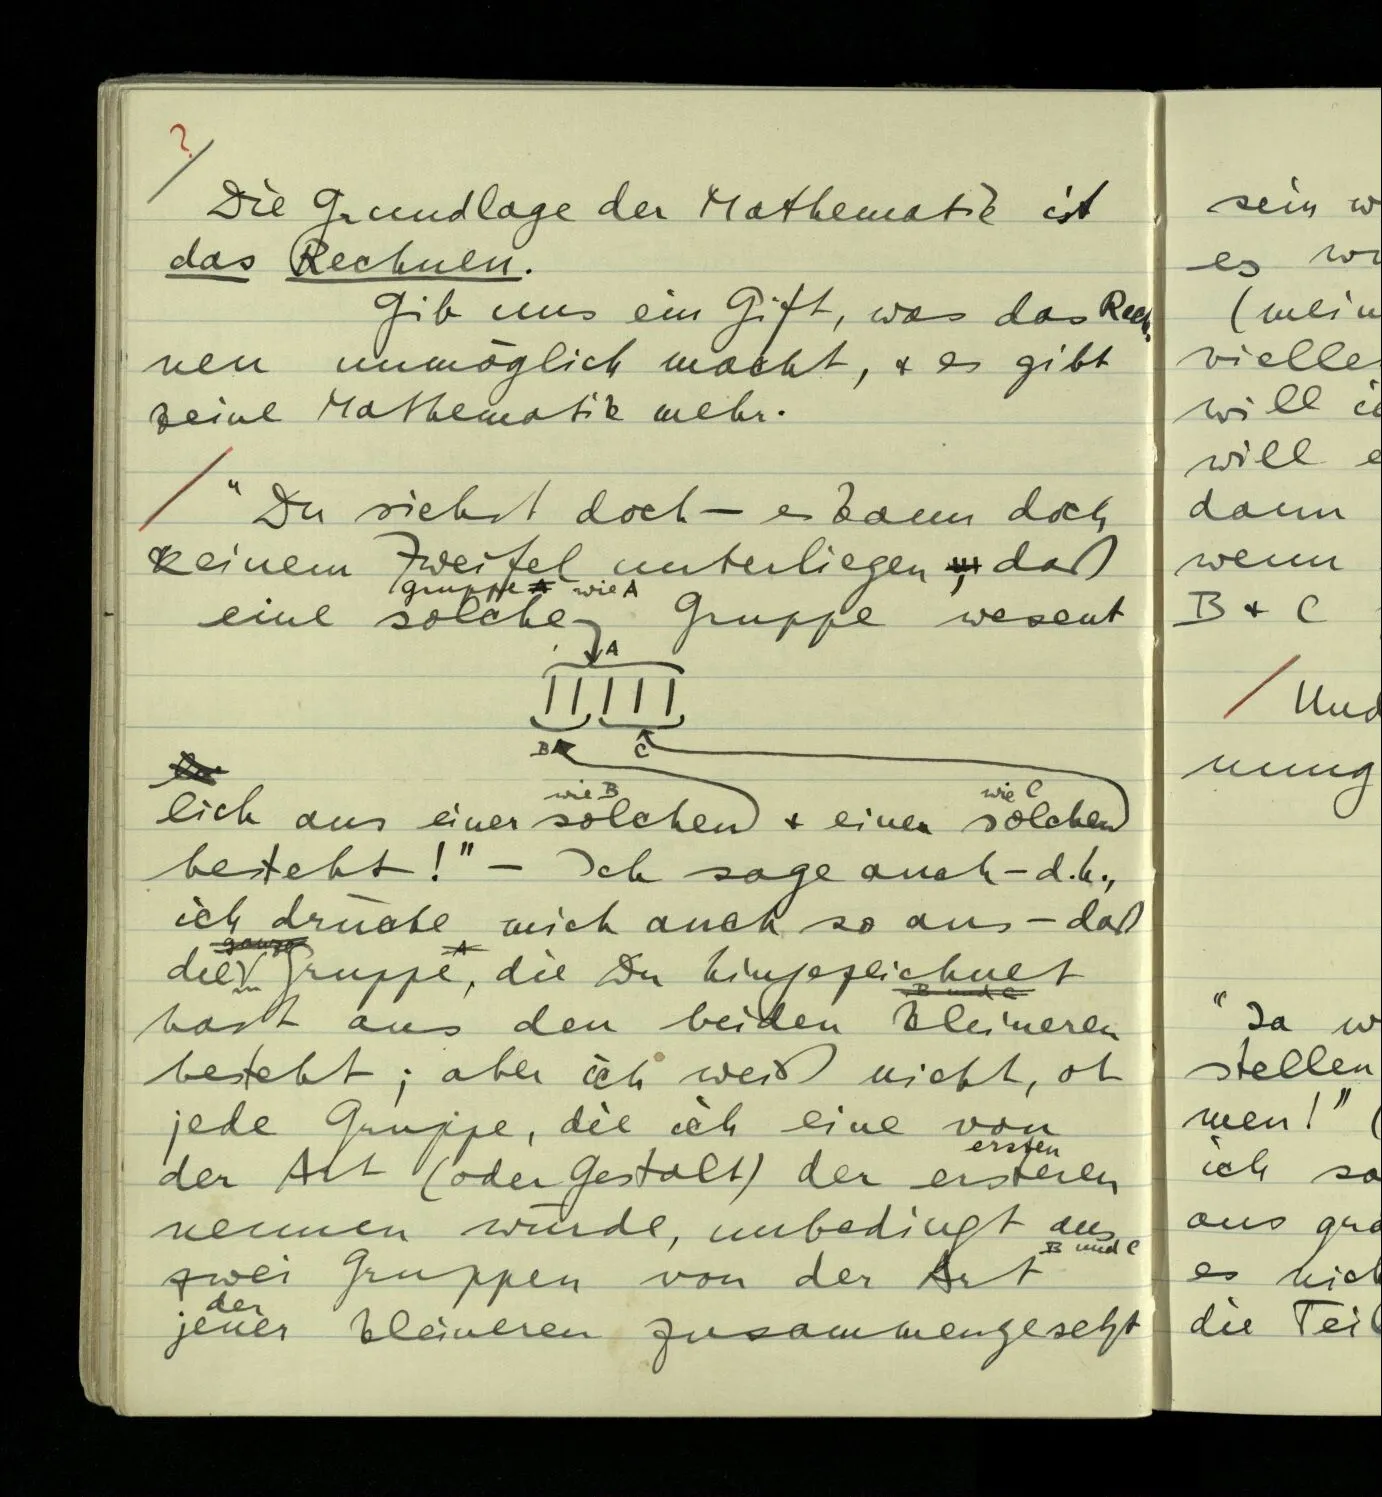 ?/
Die Grundlage der Mathematik ist
das Rechnen.
Gib uns ein Gift, was das Rech
nen unmöglich macht, + es gibt
keine Mathematik mehr.
/ "Du siehst doch — es kann doch
keinem Zweifel unterliegen, daß
gruppe A wie A
eine solche Gruppe wesent
A
B C
wie B wie C
lich aus einer solchen + einer solchen
besteht!" — Ich sage auch – d.h.,
ich drücke mich auch so aus – daß
ganze A
die Gruppe, die Du hingezeichnet
B und C
hast aus den beiden kleineren
besteht; aber ich weiß nicht, ob
jede Gruppe, die ich eine von
ersten
der Art (oder Gestalt) der ersteren
nennen würde, unbedingt aus
B und C
zwei Gruppen von der Art
der
jener kleineren zusammengesetzt
sein w
es
(mein
vielle
will ic
will e
dann
wenn
B + C
/ Und
nung
"Ja w
stellen
men!" (
ich sa
aus gra
es nich
die Teil